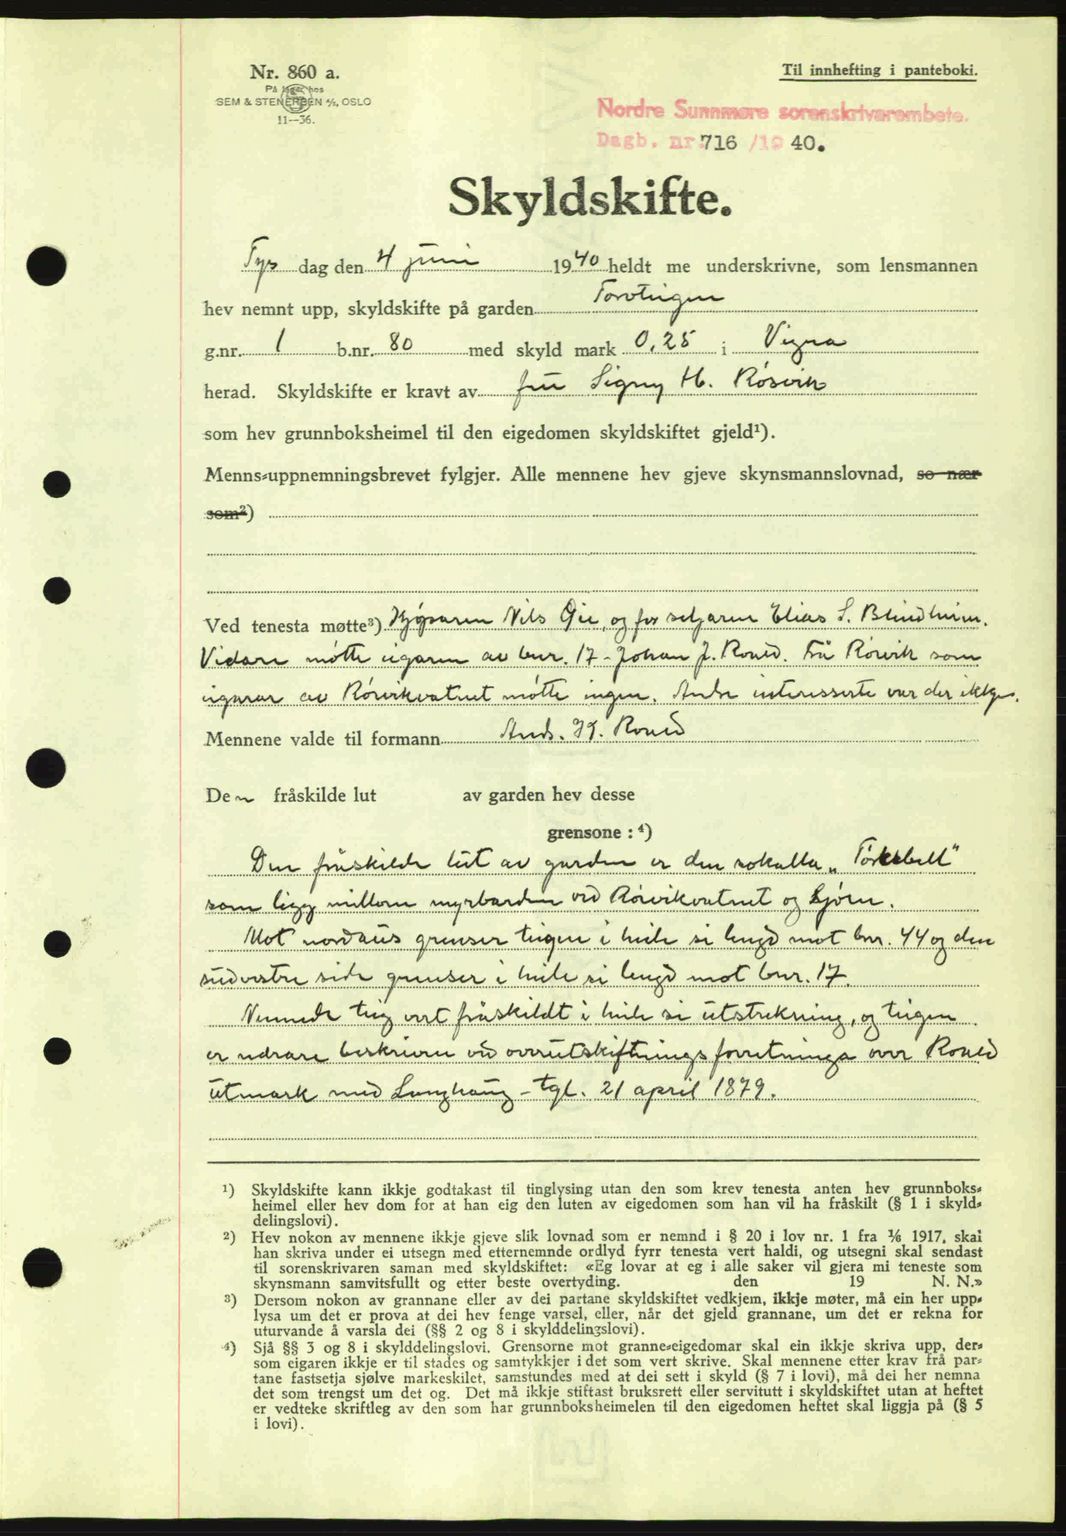 Nr. 860 a.
På lager hos
SEM & STENERSEN A/S, OSLO
11--36.
Til innhefting i panteboki.
Nordre Sunnmøre sorenskrivarembete.
Dagb. nr. 716 /19 40.
Skyldskifte.
Tys dag den 4 juni 1940 heldt me underskrivne, som lensmannen
hev nemnt upp, skyldskifte på garden
g.nr. 1 b.nr. 80 med skyld mark 0,25 i Vigra
herad. Skyldskifte er kravt av fru Signy H. Røsvik
som hev grunnboksheimel til den eigedomen skyldskiftet gjeld¹).
Menns-uppnemningsbrevet fylgjer. Alle mennene hev gjeve skynsmannslovnad, so nær
som²)
Ved tenesta møtte³) Kjøparen Nils Gie, og for seljaren Elias S. Blindheim.
Vidare møtte eigaren av bnr. 17 - Johan J. Roald. Frå Rørvik som
eigarar av Rørvikvatnet møtte ingen. Andre interesserte var der ikkje.
Mennene valde til formann Ands. K. Roald
Den fråskilde lut av garden hev desse
grensone : ⁴)
Den fråskilde lut av garden er den sokalla „Torkebell"
som ligg millom myrbarden ved Rørvikvatnet og Sjøen.
Mot nordaus grenser teigen i heile si lengd mot bnr. 44 og den
sudvestre side grenser i heile si lengd mot bnr. 17.
Nemnde teig vert fråskildt i heile si utstrekning, og teigen
er nærare beskriven ved overutskiftnings forretninga over Roald
utmark med Langhaug - tgl. 21 april 1879.
¹) Skyldskifte kann ikkje godtakast til tinglysing utan den som krev tenesta anten hev grunnboks-
heimel eller hev dom for at han eig den luten av eigedomen som han vil ha fråskilt (§ 1 i skyld-
delingslovi).
²) Hev nokon av mennene ikkje gjeve slik lovnad som er nemnd i § 20 i lov nr. 1 fra ⅙ 1917, skai
han skriva under ei utsegn med etternemnde ordlyd fyrr tenesta vert haldi, og utsegni skal sendast
til sorenskrivaren saman med skyldskiftet: «Eg lovar at eg i alle saker vil gjera mi teneste som
skynsmann samvitsfullt og etter beste overtyding. den 19 N. N.»
³) Dersom nokon av grannane eller av dei partane skyldskiftet vedkjem, ikkje møter, må ein her upp-
lysa um det er prova at dei hev fenge varsel, eller, når det gjeld grannane, um det er rekna for
uturvande å varsla dei (§§ 2 og 8 i skylddelingslovi).
⁴) Sjå §§ 3 og 8 i skylddelingslovi. Grensorne mot granne-eigedomar skal ein ikkje skriva upp, der-
som eigaren ikkje er til stades og samtykkjer i det som vert skrive. Skal mennene etter krav frå par-
tane fastsetja sjølve markeskilet, samstundes med at dei sett i skyld (§ 7 i lovi), må dei her nemna
det som trengst um det og. Det må ikkje stiftast bruksrett eller servitutt i skyldskiftet utan at heftet
er vedteke skriftleg av den som har grunnboksheimelen til den eigedomen heftet skal liggja på (§ 5
i lovi).